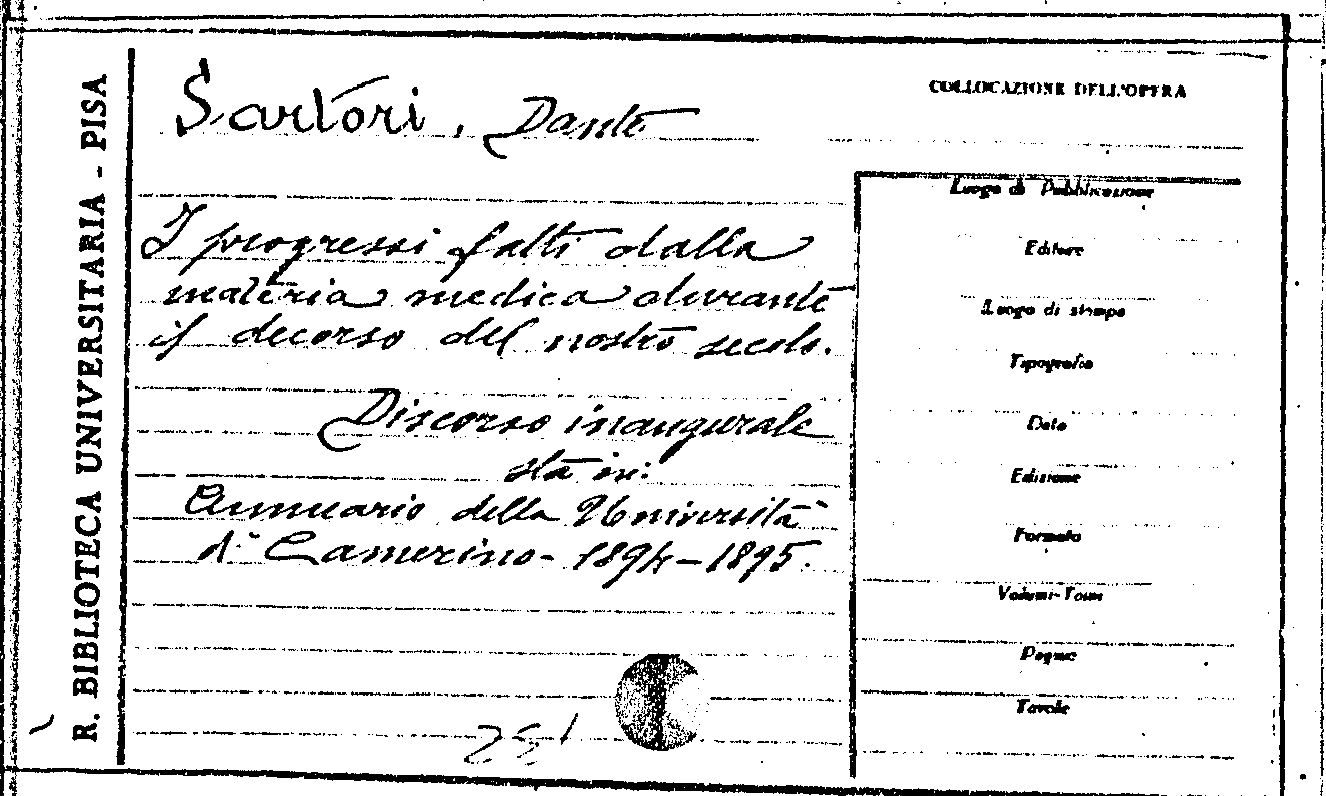 R. BIBLIOTECA UNIVERSITARIA - PISA
Sartori, Dante
I progressi fatti dalla
materia medica durante
il decorso del nostro secolo.
Discorso inaugurale
sta in:
Annuario della Università
di Camerino - 1894-1895.
COLLOCAZIONE DELL'OPERA
Luogo di Pubblicazione
Editore
Luogo di stampa
Tipografia
Data
Edizione
Formato
Volumi-Tomi
Pagine
Tavole